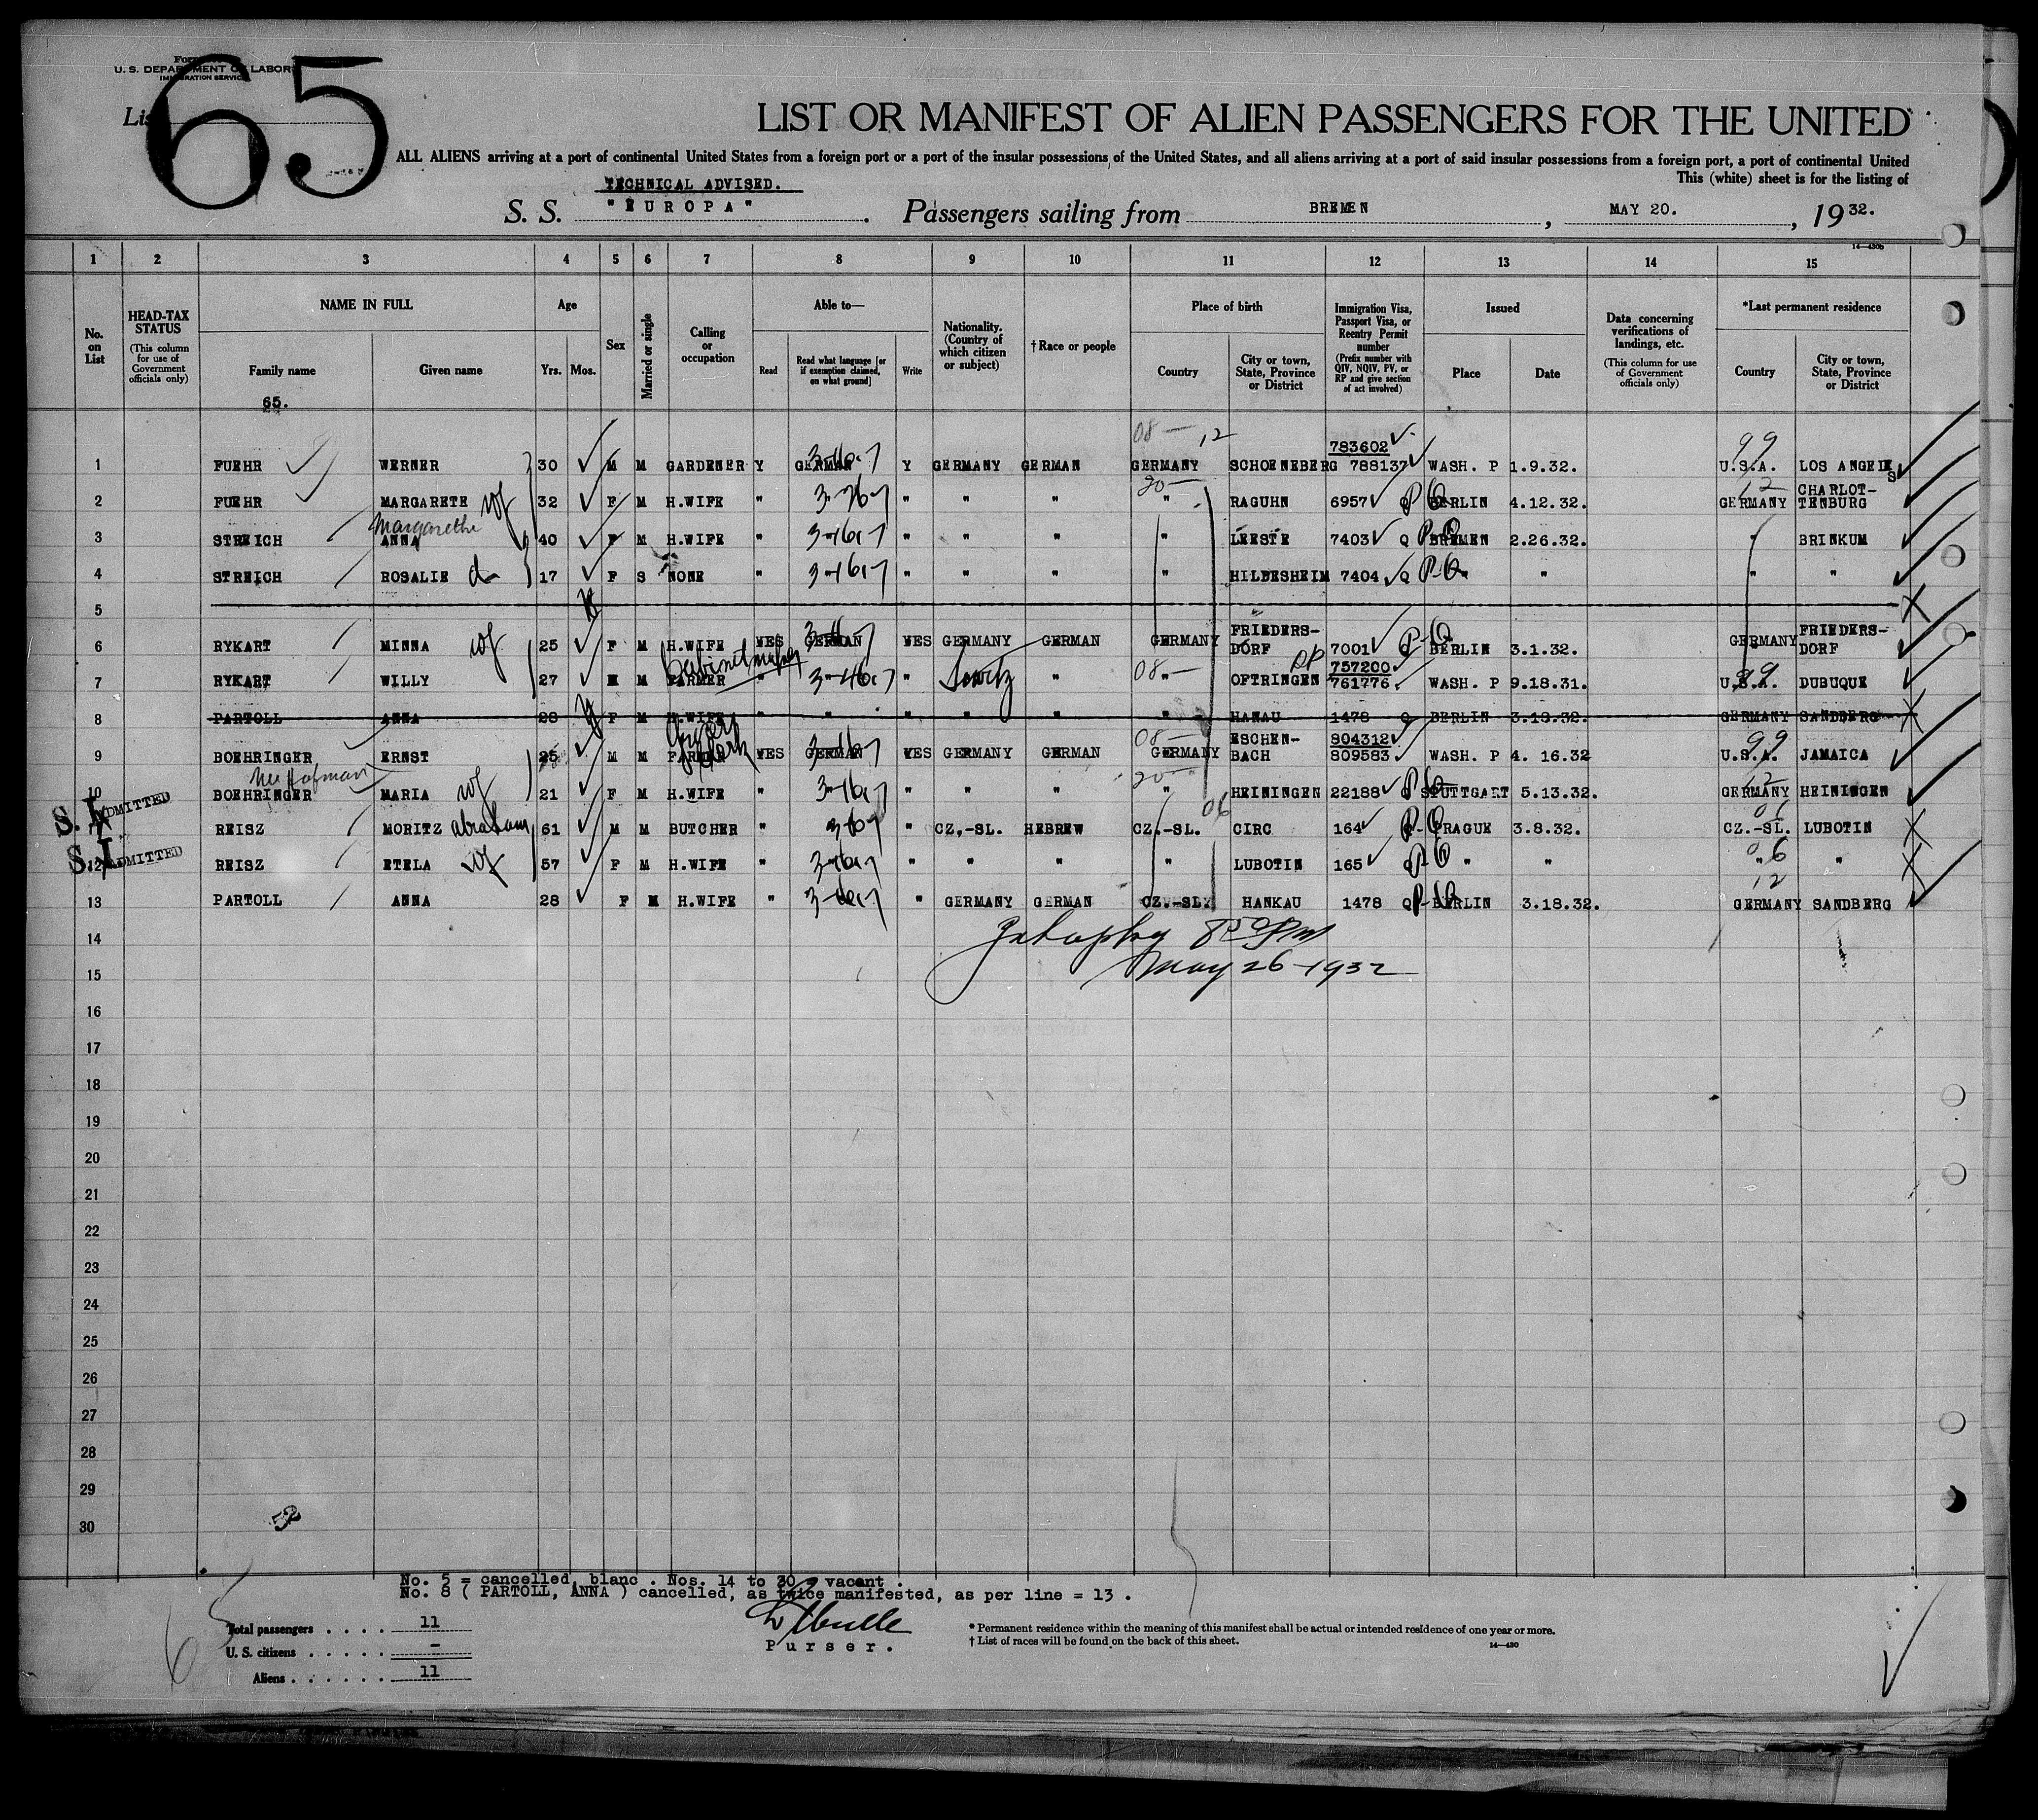 Form
U. S. DEPARTMENT OF LABOR
IMMIGRATION SERVICE
65
List
LIST OR MANIFEST OF ALIEN PASSENGERS FOR THE UNITED
ALL ALIENS arriving at a port of continental United States from a foreign port or a port of the insular possessions of the United States, and all aliens arriving at a port of said insular possessions from a foreign port, a port of continental United
This (white) sheet is for the listing of
TECHNICAL ADVISED.
S. S. "EUROPA". Passengers sailing from BREMEN, MAY 20., 1932.
14—430b
1 2 3 4 5 6 7 8 9 10 11 12 13 14 15
No. on List
HEAD-TAX STATUS (This column for use of Government officials only)
NAME IN FULL Family name Given name
65.
Age Yrs. Mos.
Sex
Married or single
Calling or occupation
Able to— Read Read what language [or if exemption claimed, on what ground] Write
Nationality. (Country of which citizen or subject)
†Race or people
Place of birth Country City or town, State, Province or District
Immigration Visa, Passport Visa, or Reentry Permit number (Prefix number with QIV, NQIV, PV, or RP and give section of act involved)
Issued Place Date
Data concerning verifications of landings, etc. (This column for use of Government officials only)
*Last permanent residence Country City or town, State, Province or District
08— 12 783602 99
1 FUEHR WERNER 30 M M GARDENER Y GERMAN Y GERMANY GERMAN GERMANY SCHOENEBERG 788137 WASH. P 1.9.32. U.S.A. LOS ANGELES
20— 12
2 FUEHR MARGARETE wf 32 F M H.WIFE " " " " " RAGUHN 6957 Q BERLIN 4.12.32. GERMANY CHARLOT-TENBURG
Margarethe
3 STREICH ANNA 40 F M H.WIFE " " " " " LEESTE 7403 Q BREMEN 2.26.32. " BRINKUM
4 STREICH ROSALIE d 17 F S NONE " " " " " HILDESHEIM 7404 Q " " " "
5
6 RYKART MINNA wf 25 F M H.WIFE YES GERMAN YES GERMANY GERMAN GERMANY FRIEDERS-DORF 7001 Q BERLIN 3.1.32. GERMANY FRIEDERS-DORF
Cabinetmaker Switz 08— 757200 99
7 RYKART WILLY 27 M M FARMER " " " " " OFTRINGEN 761776 WASH. P 9.18.31. U.S.A. DUBUQUE
8 PARTOLL ANNA 28 F M H.WIFE " " " " " " HANAU 1478 Q BERLIN 3.18.32. GERMANY SANDBERG
Grocery Clerk 08— 804312 99
9 BOEHRINGER ERNST 25 M M FARMER YES GERMAN YES GERMANY GERMAN GERMANY ESCHEN-BACH 809583 WASH. P 4. 16.32 U.S.A. JAMAICA
nee Hofmann 20— 12
10 BOEHRINGER MARIA wf 21 F M H.WIFE " " " " " HEININGEN 22188 Q STUTTGART 5.13.32. GERMANY HEININGEN
S.I. ADMITTED
11 REISZ MORITZ abraham 61 M M BUTCHER " " CZ,-SL. HEBREW CZ.-SL. CIRC 164 PRAGUE 3.8.32. CZ.-SL. LUBOTIN
S.I. ADMITTED
12 REISZ ETELA wf 57 F M H.WIFE " " " " " LUBOTIN 165 " " " "
13 PARTOLL ANNA 28 F M H.WIFE " " GERMANY GERMAN CZ.-SL. HANKAU 1478 Q BERLIN 3.18.32. GERMANY SANDBERG
14
May 26-1932
15
16
17
18
19
20
21
22
23
24
25
26
27
28
29
30
No. 5 = cancelled, blanc . Nos. 14 to 30 = vacant .
No. 8 ( PARTOLL, ANNA ) cancelled, as twice manifested, as per line = 13 .
65
Total passengers 11
U. S. citizens –
Aliens 11
Purser.
* Permanent residence within the meaning of this manifest shall be actual or intended residence of one year or more.
† List of races will be found on the back of this sheet.
14—430